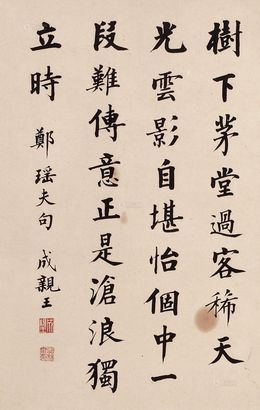 樹下茅堂過客稀天
光雲影自堪怡個中一
段難傳意正是滄浪獨
立時
鄭瑶夫句 成親王